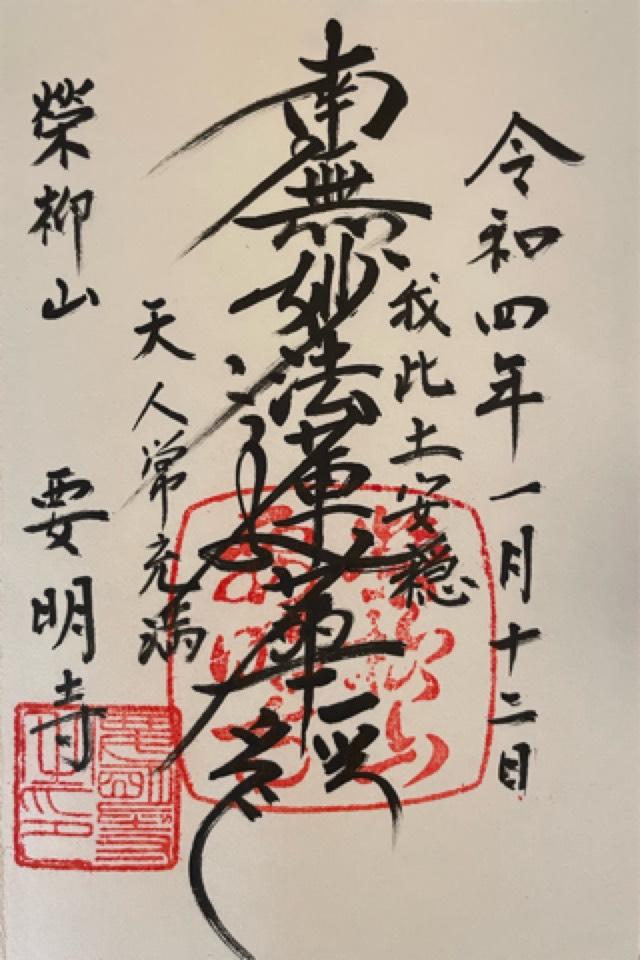 令和四年一月十二日
我此土安穏
南無妙法蓮華経
天人常充満
榮柳山 要明寺